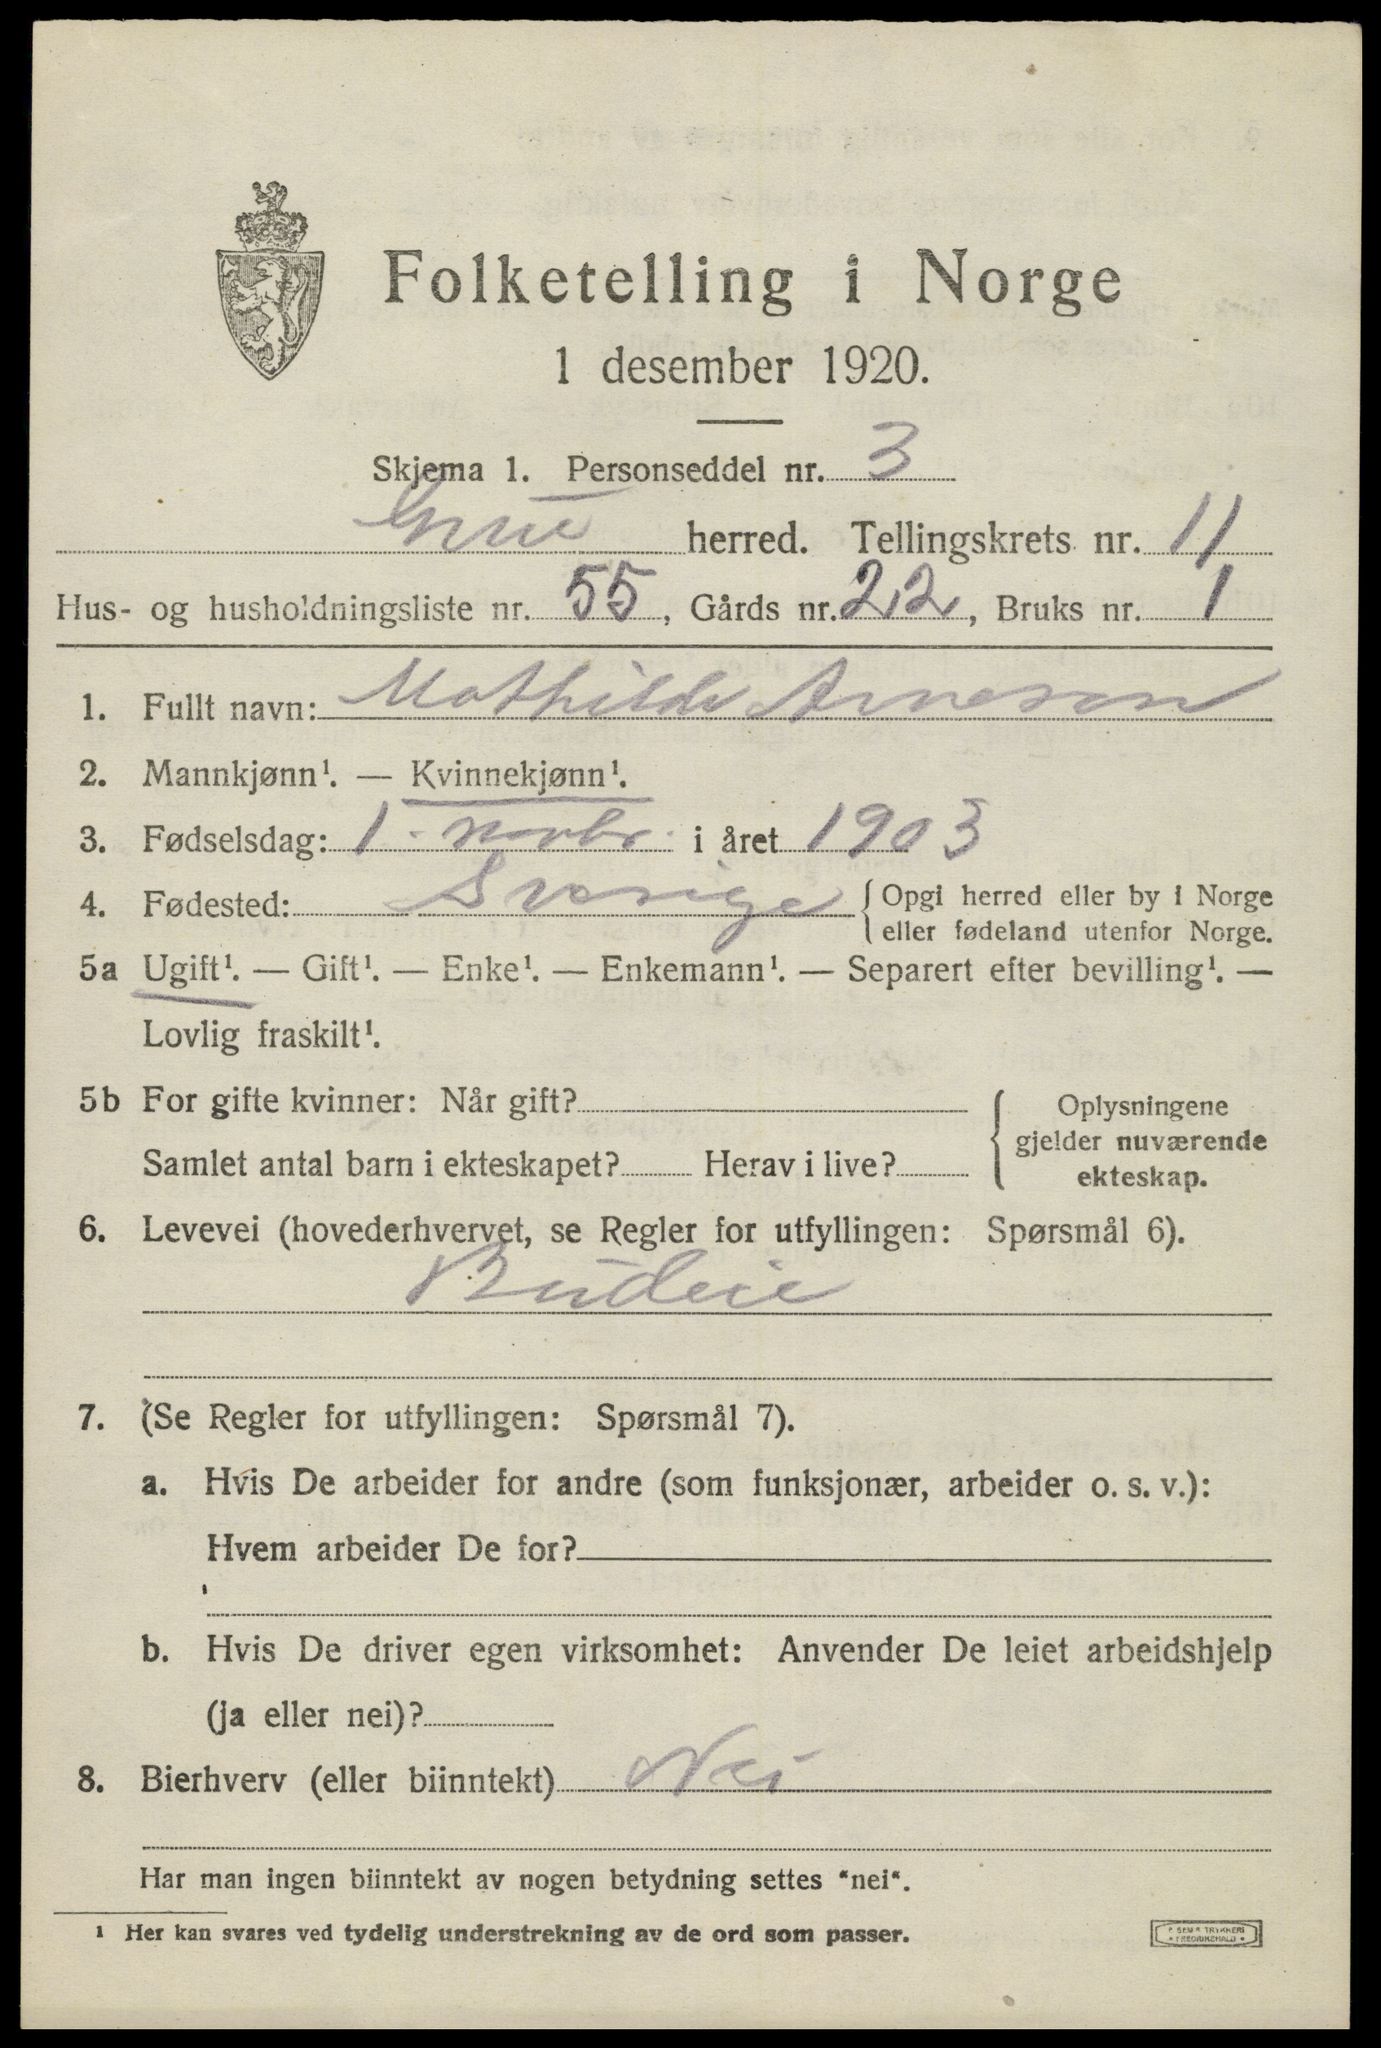 Folketelling i Norge
1 desember 1920.
Skjema 1. Personseddel nr. 3
Grue herred. Tellingskrets nr. 11
Hus- og husholdningsliste nr. 55, Gårds nr. 22, Bruks nr. 1
1. Fullt navn: Mathilde Arnesen
2. Mannkjønn¹. — Kvinnekjønn¹.
3. Fødselsdag: 1. novbr. i året 1903
4. Fødested: Sverige {Opgi herred eller by i Norge
eller fødeland utenfor Norge.
5a Ugift¹. — Gift¹. — Enke¹. — Enkemann¹. — Separert efter bevilling¹. —
Lovlig fraskilt¹.
5b For gifte kvinner: Når gift? { Oplysningene
gjelder nuværende
Samlet antal barn i ekteskapet? Herav i live?
ekteskap.
6. Levevei (hovederhvervet, se Regler for utfyllingen: Spørsmål 6).
Budeie
7. (Se Regler for utfyllingen: Spørsmål 7).
a. Hvis De arbeider for andre (som funksjonær, arbeider o. s. v.):
Hvem arbeider De for?
b. Hvis De driver egen virksomhet: Anvender De leiet arbeidshjelp
(ja eller nei)?
8. Bierhverv (eller biinntekt) Nei
Har man ingen biinntekt av nogen betydning settes "nei".
¹ Her kan svares ved tydelig understrekning av de ord som passer.
E. SEM'S TRYKKERI
FREDRIKSHALD